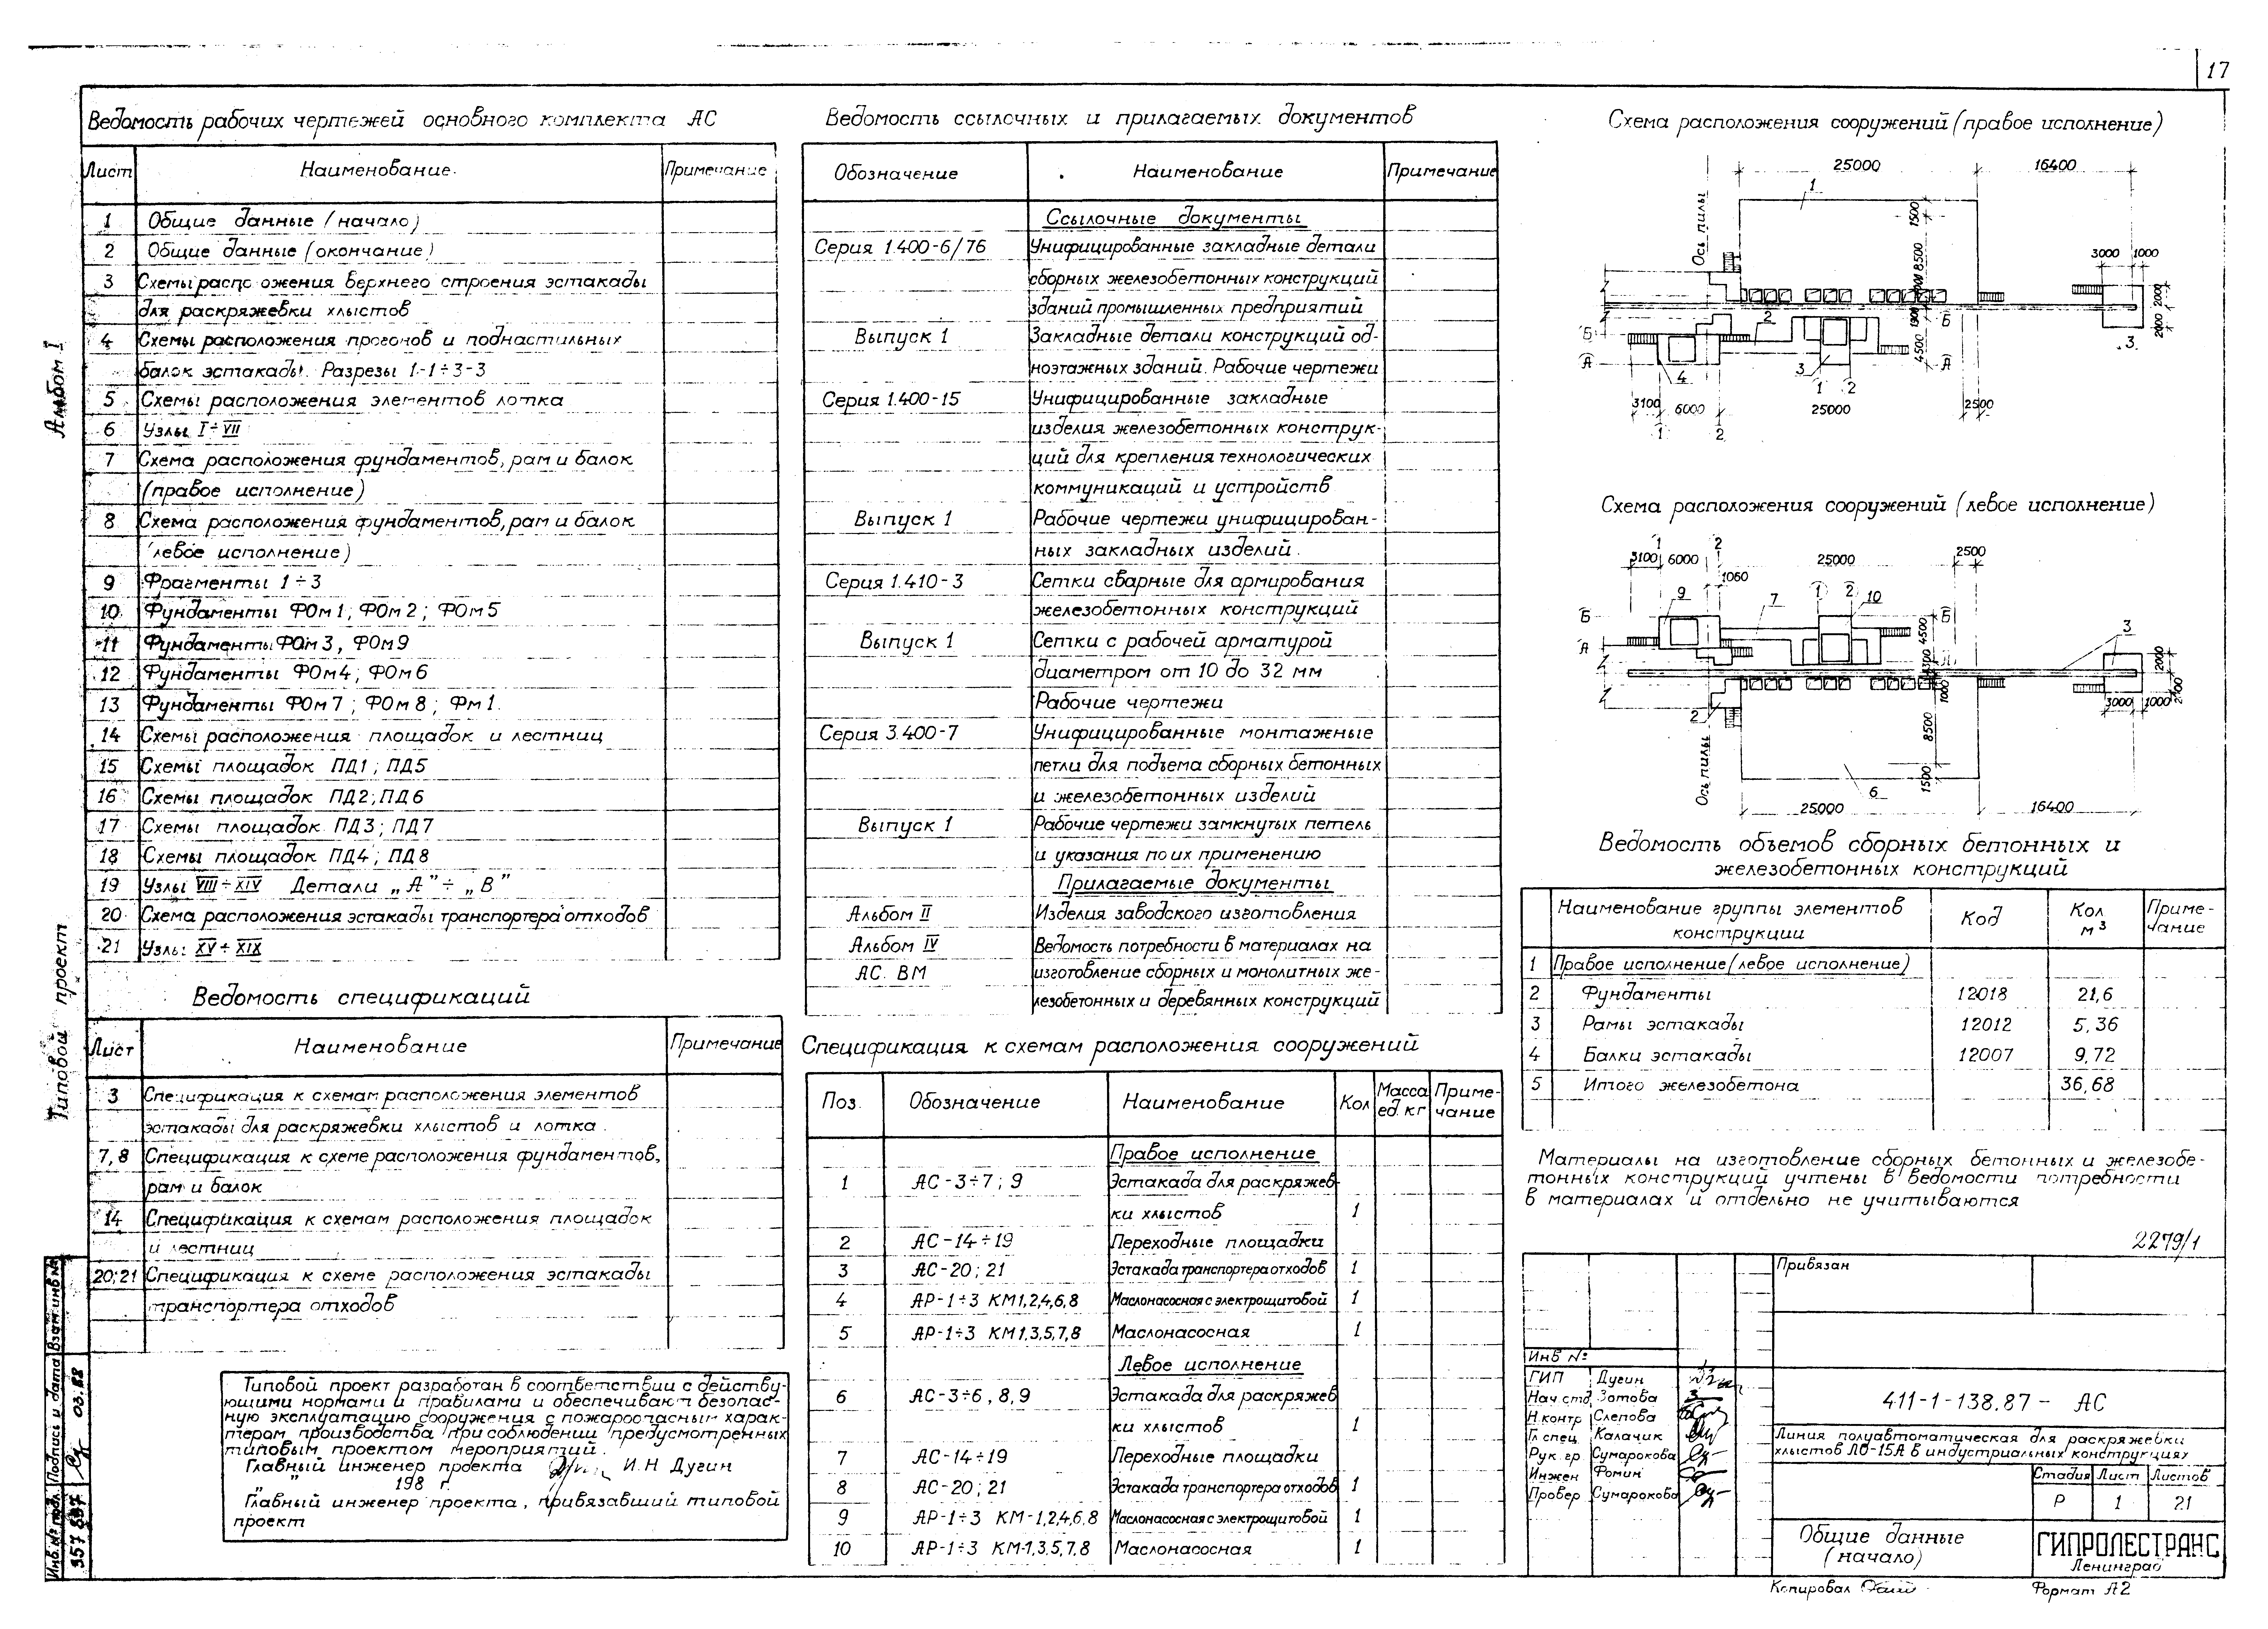 17
Альбом I
Типовой проект
Ведомость рабочих чертежей основного комплекта АС
Лист Наименование. Примечание
1 Общие данные (начало)
2 Общие данные (окончание)
3 Схемы распо ожения верхнего строения эстакады
для раскряжевки хлыстов
4 Схемы расположения прогонов и поднастильных
балок эстакады. Разрезы 1-1÷3-3
5 Схемы расположения элементов лотка
6 Узлы I÷VII
7 Схема расположения фундаментов, рам и балок
(правое исполнение)
8 Схема расположения фундаментов, рам и балок
(левое исполнение)
9 Фрагменты 1÷3
10 Фундаменты ФОм1; ФОм2; ФОм5
11 Фундаменты ФОм3, ФОм9
12 Фундаменты ФОм4; ФОм6
13 Фундаменты ФОм7; ФОм8; Фм1.
14 Схемы расположения площадок и лестниц
15 Схемы площадок ПД1; ПД5
16 Схемы площадок ПД2; ПД6
17 Схемы площадок ПД3; ПД7
18 Схемы площадок ПД4; ПД8
19 Узлы VIII÷XIV Детали „А"÷„В"
20 Схема расположения эстакады транспортера отходов
21 Узлы XV÷XIX
Ведомость спецификаций
Лист Наименование Примечание
3 Спецификация к схемам расположения элементов
эстакады для раскряжевки хлыстов и лотка.
7,8 Спецификация к схеме расположения фундаментов,
рам и балок
14 Спецификация к схемам расположения площадок
и лестниц
20;21 Спецификация к схеме расположения эстакады
транспортера отходов
Типовой проект разработан в соответствии с действу-
ющими нормами и правилами и обеспечивают безопас-
ную эксплуатацию сооружения с пожароопасным харак-
тером производства при соблюдении предусмотренных
типовым проектом мероприятий.
Главный инженер проекта И.Н Дугин
„ " 198 г.
Главный инженер проекта, привязавший типовой
проект
Инв.№ подл. Подпись и дата Взам.инв.№
357887 03.88
Ведомость ссылочных и прилагаемых документов
Обозначение Наименование Примечание
Ссылочные документы
Серия 1.400-6/76 Унифицированные закладные детали
сборных железобетонных конструкций
зданий промышленных предприятий
Выпуск 1 Закладные детали конструкций од-
ноэтажных зданий. Рабочие чертежи
Серия 1.400-15 Унифицированные закладные
изделия железобетонных конструк-
ций для крепления технологических
коммуникаций и устройств
Выпуск 1 Рабочие чертежи унифицирован-
ных закладных изделий.
Серия 1.410-3 Сетки сварные для армирования
железобетонных конструкций
Выпуск 1 Сетки с рабочей арматурой
диаметром от 10 до 32 мм
Рабочие чертежи
Серия 3.400-7 Унифицированные монтажные
петли для подъема сборных бетонных
и железобетонных изделий
Выпуск 1 Рабочие чертежи замкнутых петель
и указания по их применению
Прилагаемые документы
Альбом II Изделия заводского изготовления
Альбом IV Ведомость потребности в материалах на
АС. ВМ изготовление сборных и монолитных же-
лезобетонных и деревянных конструкций
Спецификация к схемам расположения сооружений
Поз. Обозначение Наименование Кол Масса ед. кг Приме-чание
Правое исполнение
1 АС-3÷7; 9 Эстакада для раскряжев
ки хлыстов 1
2 АС-14÷19 Переходные площадки
3 АС-20; 21 Эстакада транспортера отходов 1
4 АР-1÷3 КМ1,2,4,6,8 Маслонасосная с электрощитовой 1
5 АР-1÷3 КМ1,3,5,7,8 Маслонасосная 1
Левое исполнение
6 АС-3÷6, 8,9 Эстакада для раскряжев
ки хлыстов 1
7 АС-14÷19 Переходные площадки
8 АС-20; 21 Эстакада транспортера отходов 1
9 АР-1÷3 КМ-1,2,4,6,8 Маслонасосная с электрощитовой 1
10 АР-1÷3 КМ-1,3,5,7,8 Маслонасосная 1
Схема расположения сооружений (правое исполнение)
25000 16400
Ось пилы
1
1500
8500
3000 1000
2000
2000
Б 2 Б
А 4 3 4500 А
1 2 3
3100 6000 25000 2500
1 2
Схема расположения сооружений (левое исполнение)
1 2
3100 6000 25000 2500
1060
9 7 1 2 10
Б Б
А 4500 3
2000
1000
2 3000 1000
8500
Ось пилы
6 1500
25000 16400
Ведомость объемов сборных бетонных и
железобетонных конструкций
Наименование группы элементов конструкции Код Кол м³ Приме-чание
1 Правое исполнение (левое исполнение)
2 Фундаменты 12018 21,6
3 Рамы эстакады 12012 5,36
4 Балки эстакады 12007 9,72
5 Итого железобетона 36,68
Материалы на изготовление сборных бетонных и железобе-
тонных конструкций учтены в ведомости потребности
в материалах и отдельно не учитываются
2279/1
Привязан
Инв №
ГИП Дугин
Нач отд. Зотова
Н.контр Слепова
Гл спец. Калачик
Рук. гр Сумарокова
Инжен Фомин
Провер Сумарокова
411-1-138.87 - АС
Линия полуавтоматическая для раскряжевки
хлыстов ЛО-15А в индустриальных конструкциях
Стадия Лист Листов
Р 1 21
Общие данные
(начало)
ГИПРОЛЕСТРАНС
Ленинград
Копировал
Формат А2